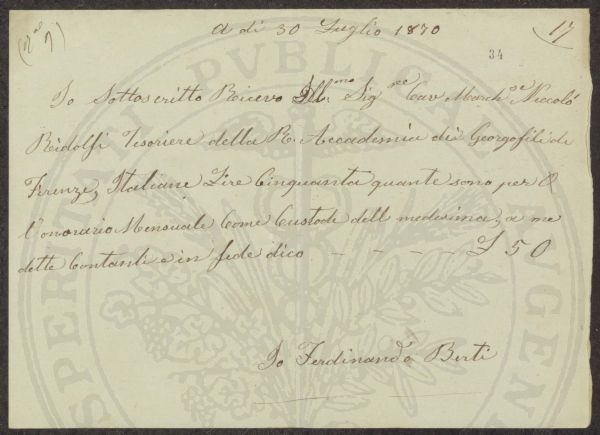 (N.al 7)
A dì 30 Luglio 1870
17
34
Io Sottoscritto Ricevo Ill.mo Sig.re Cav March.se Niccolò
Ridolfi Tesoriere della R. Accademia dei Georgofili di
Firenze, Italiane Lire Cinquanta quante sono per
l'onorario Mensuale Come Custode dell medesima, a me
dette Contanti e in fede dico — — — — £ 50
Io Ferdinando Berti
PVBLICAE
PROSPERITATI
AVGENDAE